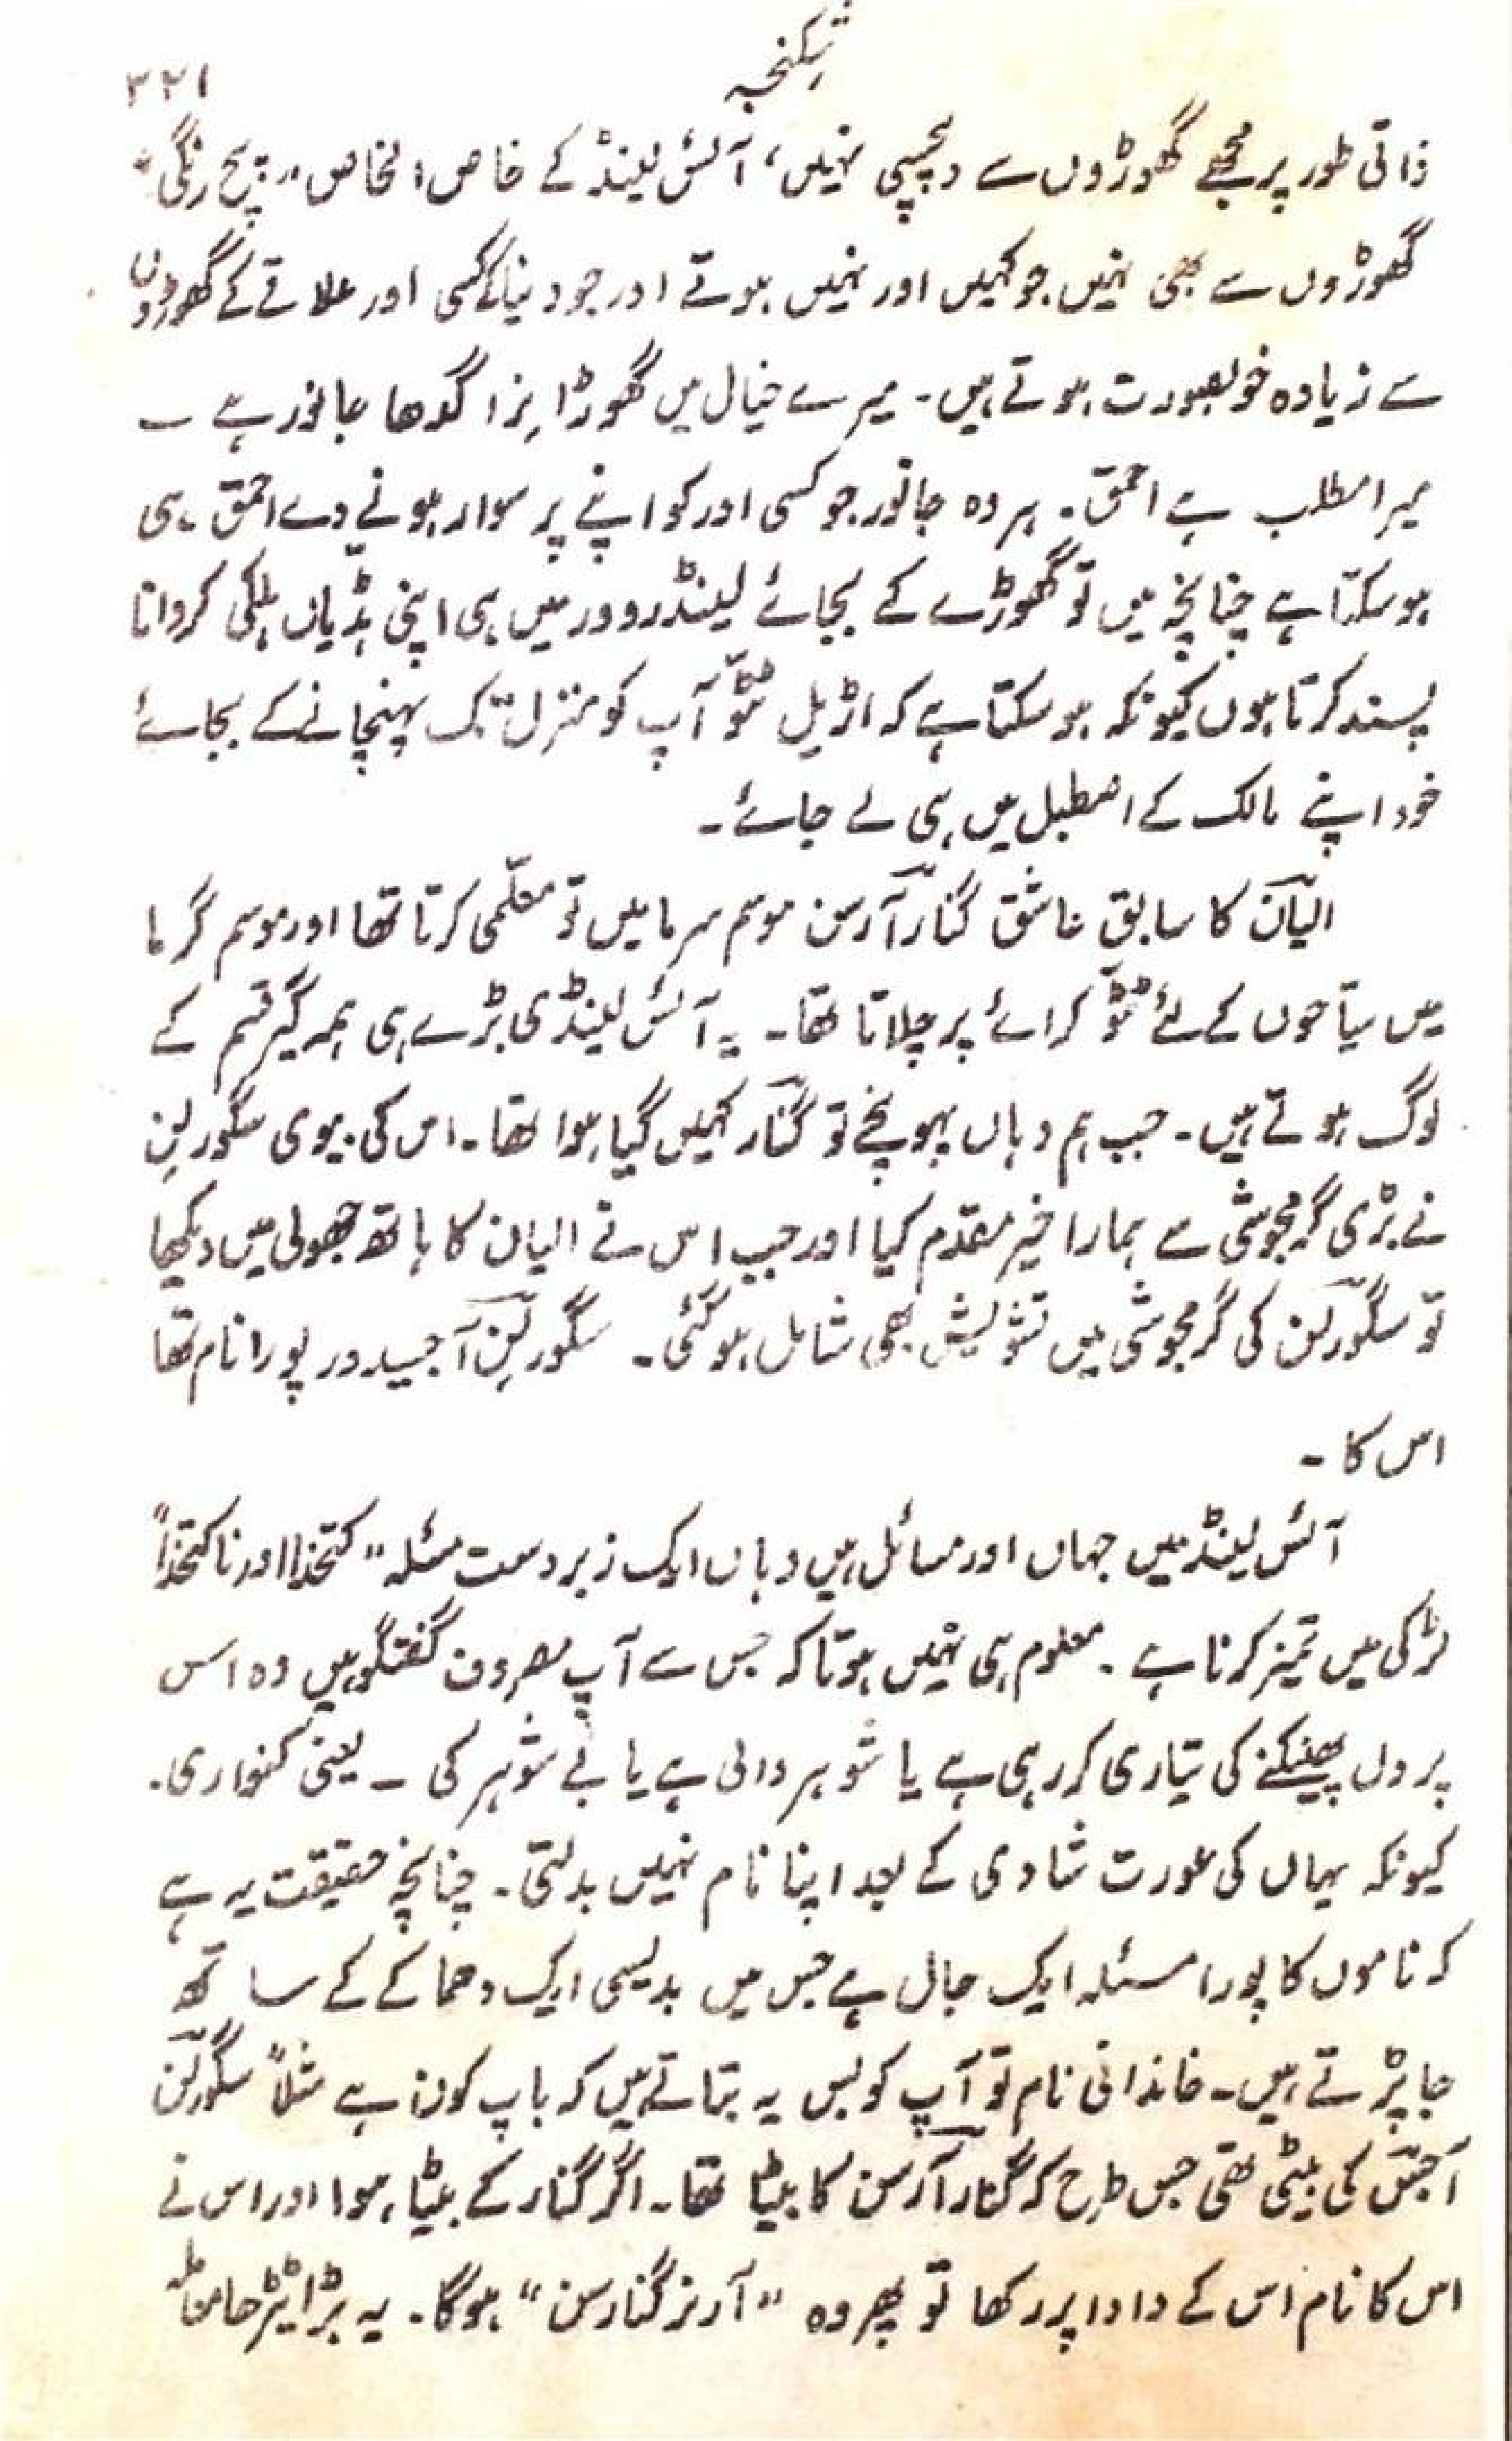 شکنجہ
۳۲۱
ذاتی طور پر مجھے گھوڑوں سے دلچسپی نہیں، آئس لینڈ کے خاص الخاص "پنج رنگی"
گھوڑوں سے بھی نہیں جو کہیں اور نہیں ہوتے اور جو دنیا کے کسی اور علاقے کے گھوڑوں
سے زیادہ خوبصورت ہوتے ہیں۔ میرے خیال میں گھوڑا نرا گدھا جانور ہے ۔
میرا مطلب ہے احمق۔ ہر وہ جانور جو کسی اور کو اپنے پر سوار ہونے دے احمق ہی
ہو سکتا ہے چنانچہ میں تو گھوڑے کے بجائے لینڈ روور میں ہی اپنی ہڈیاں ہلکی کروانا
پسند کرتا ہوں کیونکہ ہو سکتا ہے کہ اڑیل ٹٹّو آپ کو منزل تک پہنچانے کے بجائے
خود اپنے مالک کے اصطبل میں ہی لے جائے۔
الیان کا سابق عاشق گنار آرسن موسم سرما میں تو معلّمی کرتا تھا اور موسم گرما
میں سیّاحوں کے لئے ٹٹّو کرائے پر چلاتا تھا۔ یہ آئس لینڈی بڑے ہی ہمہ گیر قسم کے
لوگ ہوتے ہیں۔ جب ہم وہاں پہونچے تو گنار کہیں گیا ہوا تھا۔ اس کی بیوی سگورلِن
نے بڑی گرمجوشی سے ہمارا خیر مقدم کیا اور جب اس نے الیان کا ہاتھ جھولی میں دیکھا
تو سگورلن کی گرمجوشی میں تشویش بھی شامل ہو گئی۔ سگورلِن آجیسدور پورا نام تھا
اس کا ۔
آئس لینڈ میں جہاں اور مسائل ہیں وہاں ایک زبردست مسئلہ "کتخدا اور ناکتخدا"
لڑکی میں تمیز کرنا ہے۔ معلوم ہی نہیں ہوتا کہ جس سے آپ مصروف گفتگو ہیں وہ اس
پر دل پھینکنے کی تیاری کر رہی ہے یا شوہر والی ہے یا بے شوہر کی ۔ یعنی کنواری۔
کیونکہ یہاں کی عورت شادی کے بعد اپنا نام نہیں بدلتی۔ چنانچہ حقیقت یہ ہے
کہ ناموں کا پورا مسئلہ ایک جال ہے جس میں بدیسی ایک دھماکے کے ساتھ
جا پڑتے ہیں۔ خاندانی نام تو آپ کو بس یہ بتاتے ہیں کہ باپ کون ہے مثلاً سگورلن
آجس کی بیٹی تھی جس طرح کہ گنار آرسن کا بیٹا تھا۔ اگر گنار کے بیٹا ہوا اور اس نے
اس کا نام اس کے دادا پر رکھا تو پھر وہ "آرنر گنارسن" ہوگا۔ یہ بڑا ٹیڑھا معاملہ